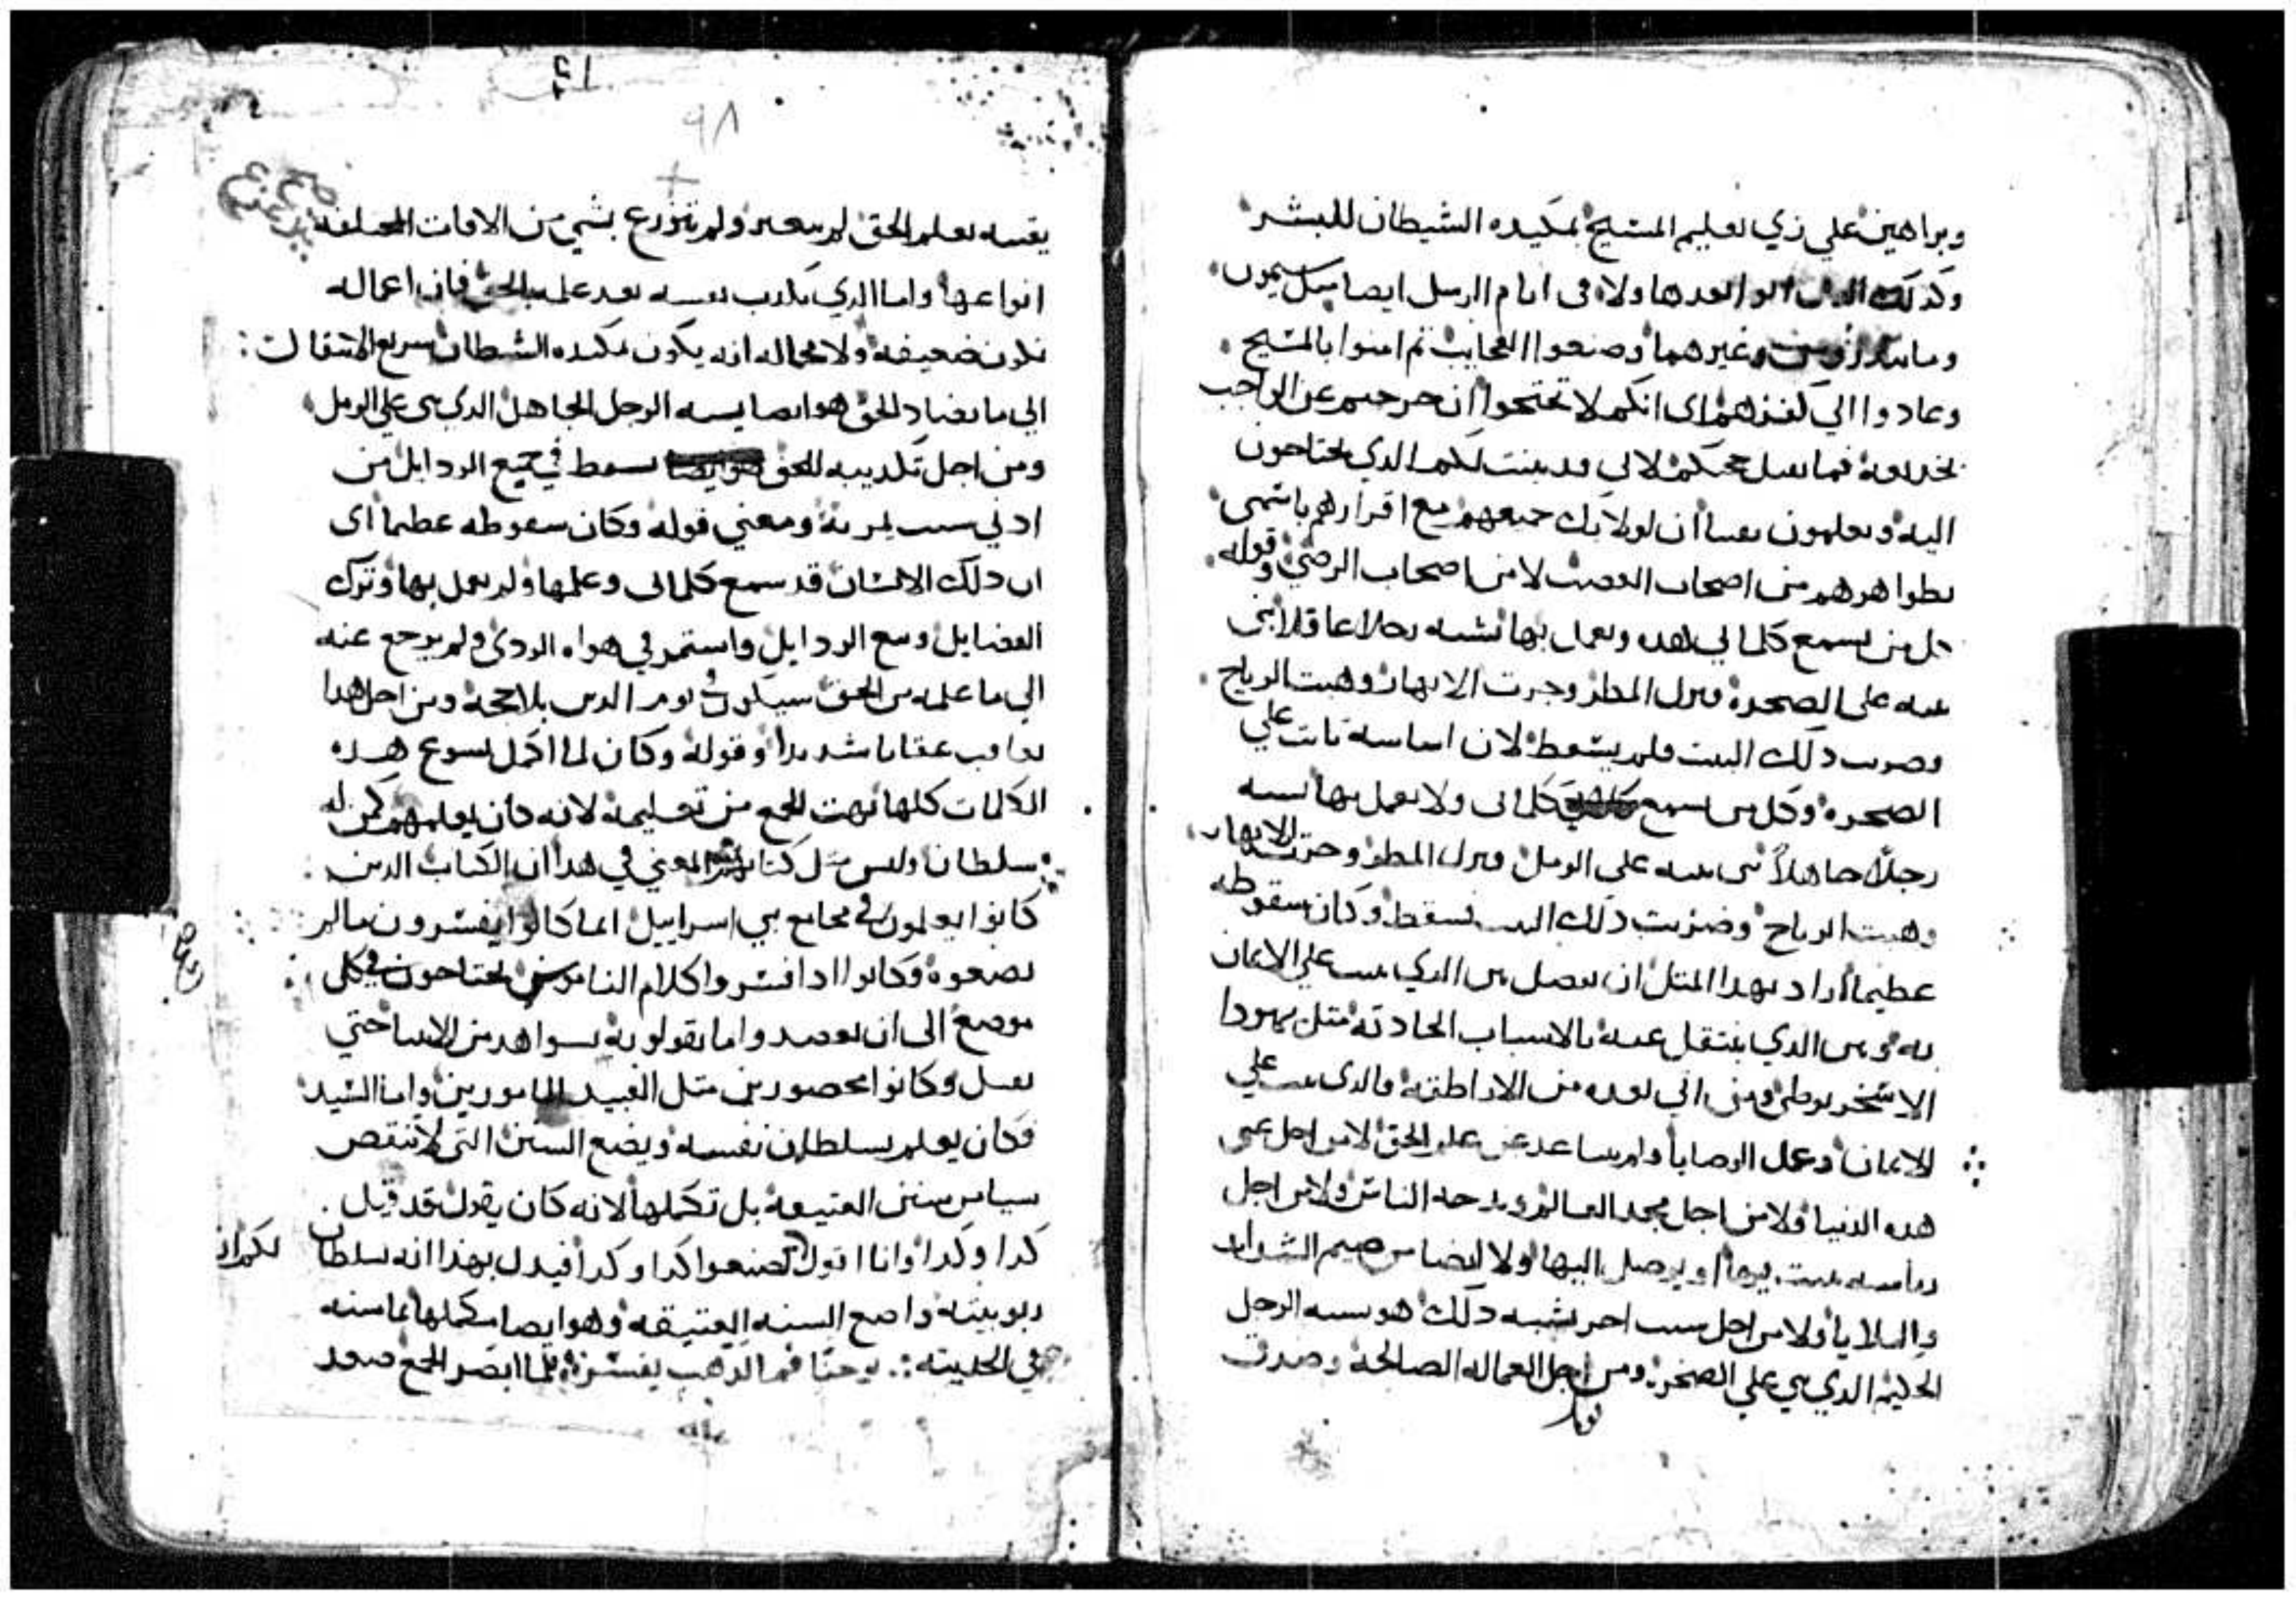 وبراهين علي زي تعليم المسيح بمكيده الشيطان للبشر
وكذلك الدين اتو بعدها ولا في ايام الرسل ايضا مثل سيمون
وغيرهما وصنعوا العجايب ثم امنوا بالمسيح
وعادوا الي كفرهم اي انكم لا تحتجوا ان خرجتم عن الواجب
بخديعه فما نقبل حجتكم لاني قد بينت لكم الدي تحتاجون
اليه وتعلمون يقينا ان اولايك جميعهم مع اقرارهم باسمي
بظواهرهم من اصحاب الغضب لا من اصحاب الرضي وقوله
كل من يسمع كلماتي هده ويعمل بها نشبه رجلا عاقلا بني
بيته على الصخره ونزل المطر وجرت الانهار وهبت الرياح
وضربت دلك البيت فلم يسقط لان اساسه ثابت علي
الصخره وكل من يسمع كلماتي ولا يعمل بها يشبه
رجلا جاهلا بني بيته على الرمل ونزل المطر وجرت الانهار
وهبت الرياح وضربت دلك البيت فسقط وكان سقوطه
عظيما اراد بهدا المتل ان يفصل بين الدي يثبت علي الايمان
به وبين الدي ينتقل عنه بالاسباب الحادثه متل يهودا
الاسخريوطي ومن اتي بعده من الاراطقه فالدي يثبت علي
الايمان وعمل الوصايا ولم يتباعد عن علم الحق لا من اجل غني
هده الدنيا ولا من اجل مجد العالم ومدحه الناس ولا من اجل
رياسه اليها ولا ايضا من الشدايد
والبلايا ولا من اجل سبب اخر يشبه دلك هو يشبه الرجل
الحكيم الدي بني علي الصخره ومن اجل اعماله الصالحه وصدق
٩٨
يقينه بعلم الحق لم يتغير ولم يتزعزع بشي من الافات المختلفه
انواعها واما الدي يكدب نفسه بعد علمه بالحق فان اعماله
تكون ضعيفه ولا محاله انه يكون بمكيده الشيطان سريع الانتقال
الي ما يضاد الحق هو ايضا يشبه الرجل الجاهل الدي بني علي الرمل
ومن اجل تكديبه للحق يسقط في جميع الردايل من
ادني سبب يمر به ومعني قوله وكان سقوطه عظيما اي
ان دلك الانسان قد سمع كلماتي وعلمها ولم يعمل بها وترك
الفضايل وتبع الردايل واستمر في هواه الردي ولم يرجع عنه
الي ما علمه من الحق سيكون في يوم الدين بلا حجه ومن اجل هدا
يعاقب عقابا شديدا وقوله وكان لما اكمل يسوع هده
الكلمات كلها بهت الجمع من تعليمه لانه كان يعلمهم كمن له
سلطان وليس متل كتابهم المعني في هدا ان الكتاب الدين
كانوا يعلمون في مجامع بني اسراييل انما كانوا يفسرون ما لم
يضعوه وكانوا ادا فسروا كلام الناموس يحتاجون في كل
موضع الى ان يعضدوا ما يقولونه بشواهد من الانبيا حتي
يقبل وكانوا محصورين متل العبيد المامورين واما السيد
فكان يعلم بسلطان نفسه ويضع السنن التي لا تنقص
شيا من سنن العتيقه بل تكملها لانه كان يقول قد قيل
كدا وكدا وانا اقول لكم ان لا تصنعوا كدا وكدا فيدل بهدا انه سلطان
ربوبيته واضع السنه العتيقه وهو ايضا مكملها بما سنه
في الحديثه : يوحنا فم الدهب يفسر فلما ابصر الجمع صعد